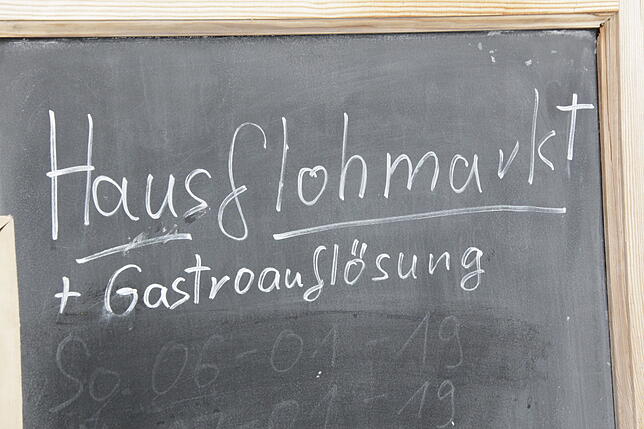 Hausflohmarkt
+ Gastroauflösung
So. 06-01-19
01-19